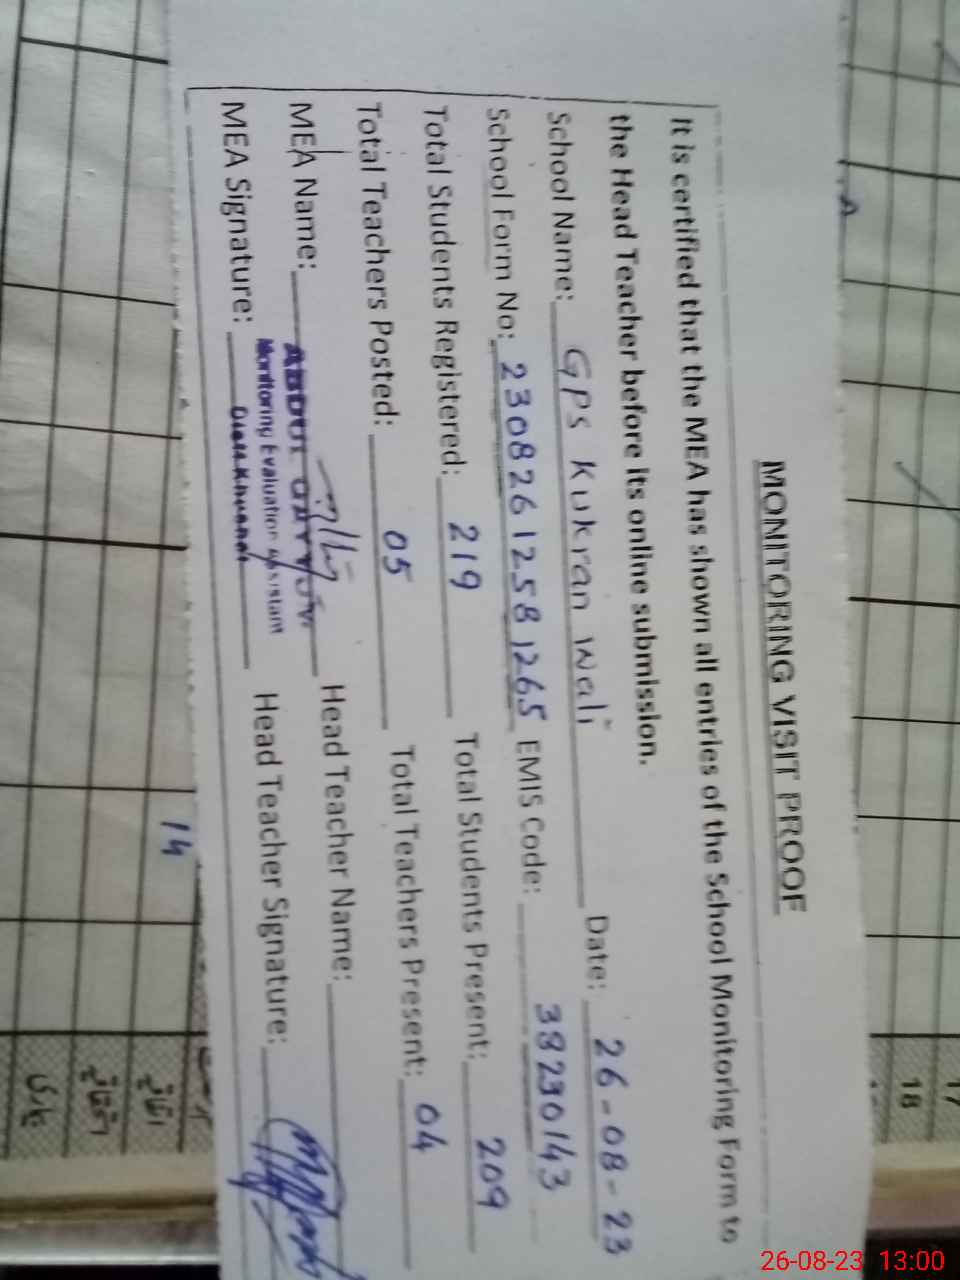 MONITORING VISIT PROOF
It is certified that the MEA has shown all entries of the School Monitoring Form to
the Head Teacher before its online submission.
School Name: GPS Kukran Wali Date: 26-08-23
School Form No: 23082612581265 EMIS Code: 38230143
Total Students Registered: 219 Total Students Present: 209
Total Teachers Posted: 05 Total Teachers Present: 04
MEA Name: ABDUL QAYYUM Head Teacher Name:
Monitoring Evaluation Assistant
MEA Signature: Head Teacher Signature:
14
17
18
26-08-23 13:00